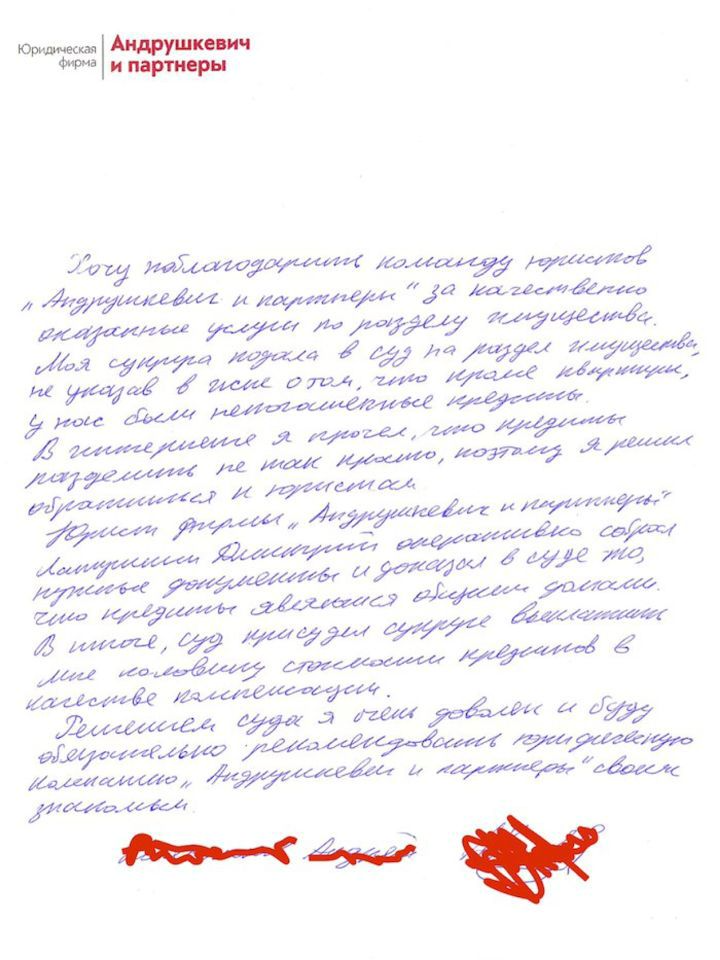 Юридическая
фирма
Андрушкевич
и партнеры
Хочу поблагодарить команду юристов
„Андрушкевич и партнеры“ за качественно
оказанные услуги по разделу имущества.
Моя супруга подала в суд на раздел имущества,
не указав в иске о том, что кроме квартиры,
у нас были непогашенные кредиты.
В интернете я прочел, что кредиты
разделить не так просто, поэтому я решил
обратиться к юристам.
Юрист фирмы „Андрушкевич и партнеры“
Дмитрий оперативно собрал
нужные документы и доказал в суде то,
что кредиты являлися общими долгами.
В итоге, суд присудил супруге выплатить
мне половину стоимости кредитов в
качестве компенсации.
Решением суда я очень доволен и буду
обязательно рекомендовать юридическую
компанию „Андрушкевич и партнеры“ своим
знакомым.